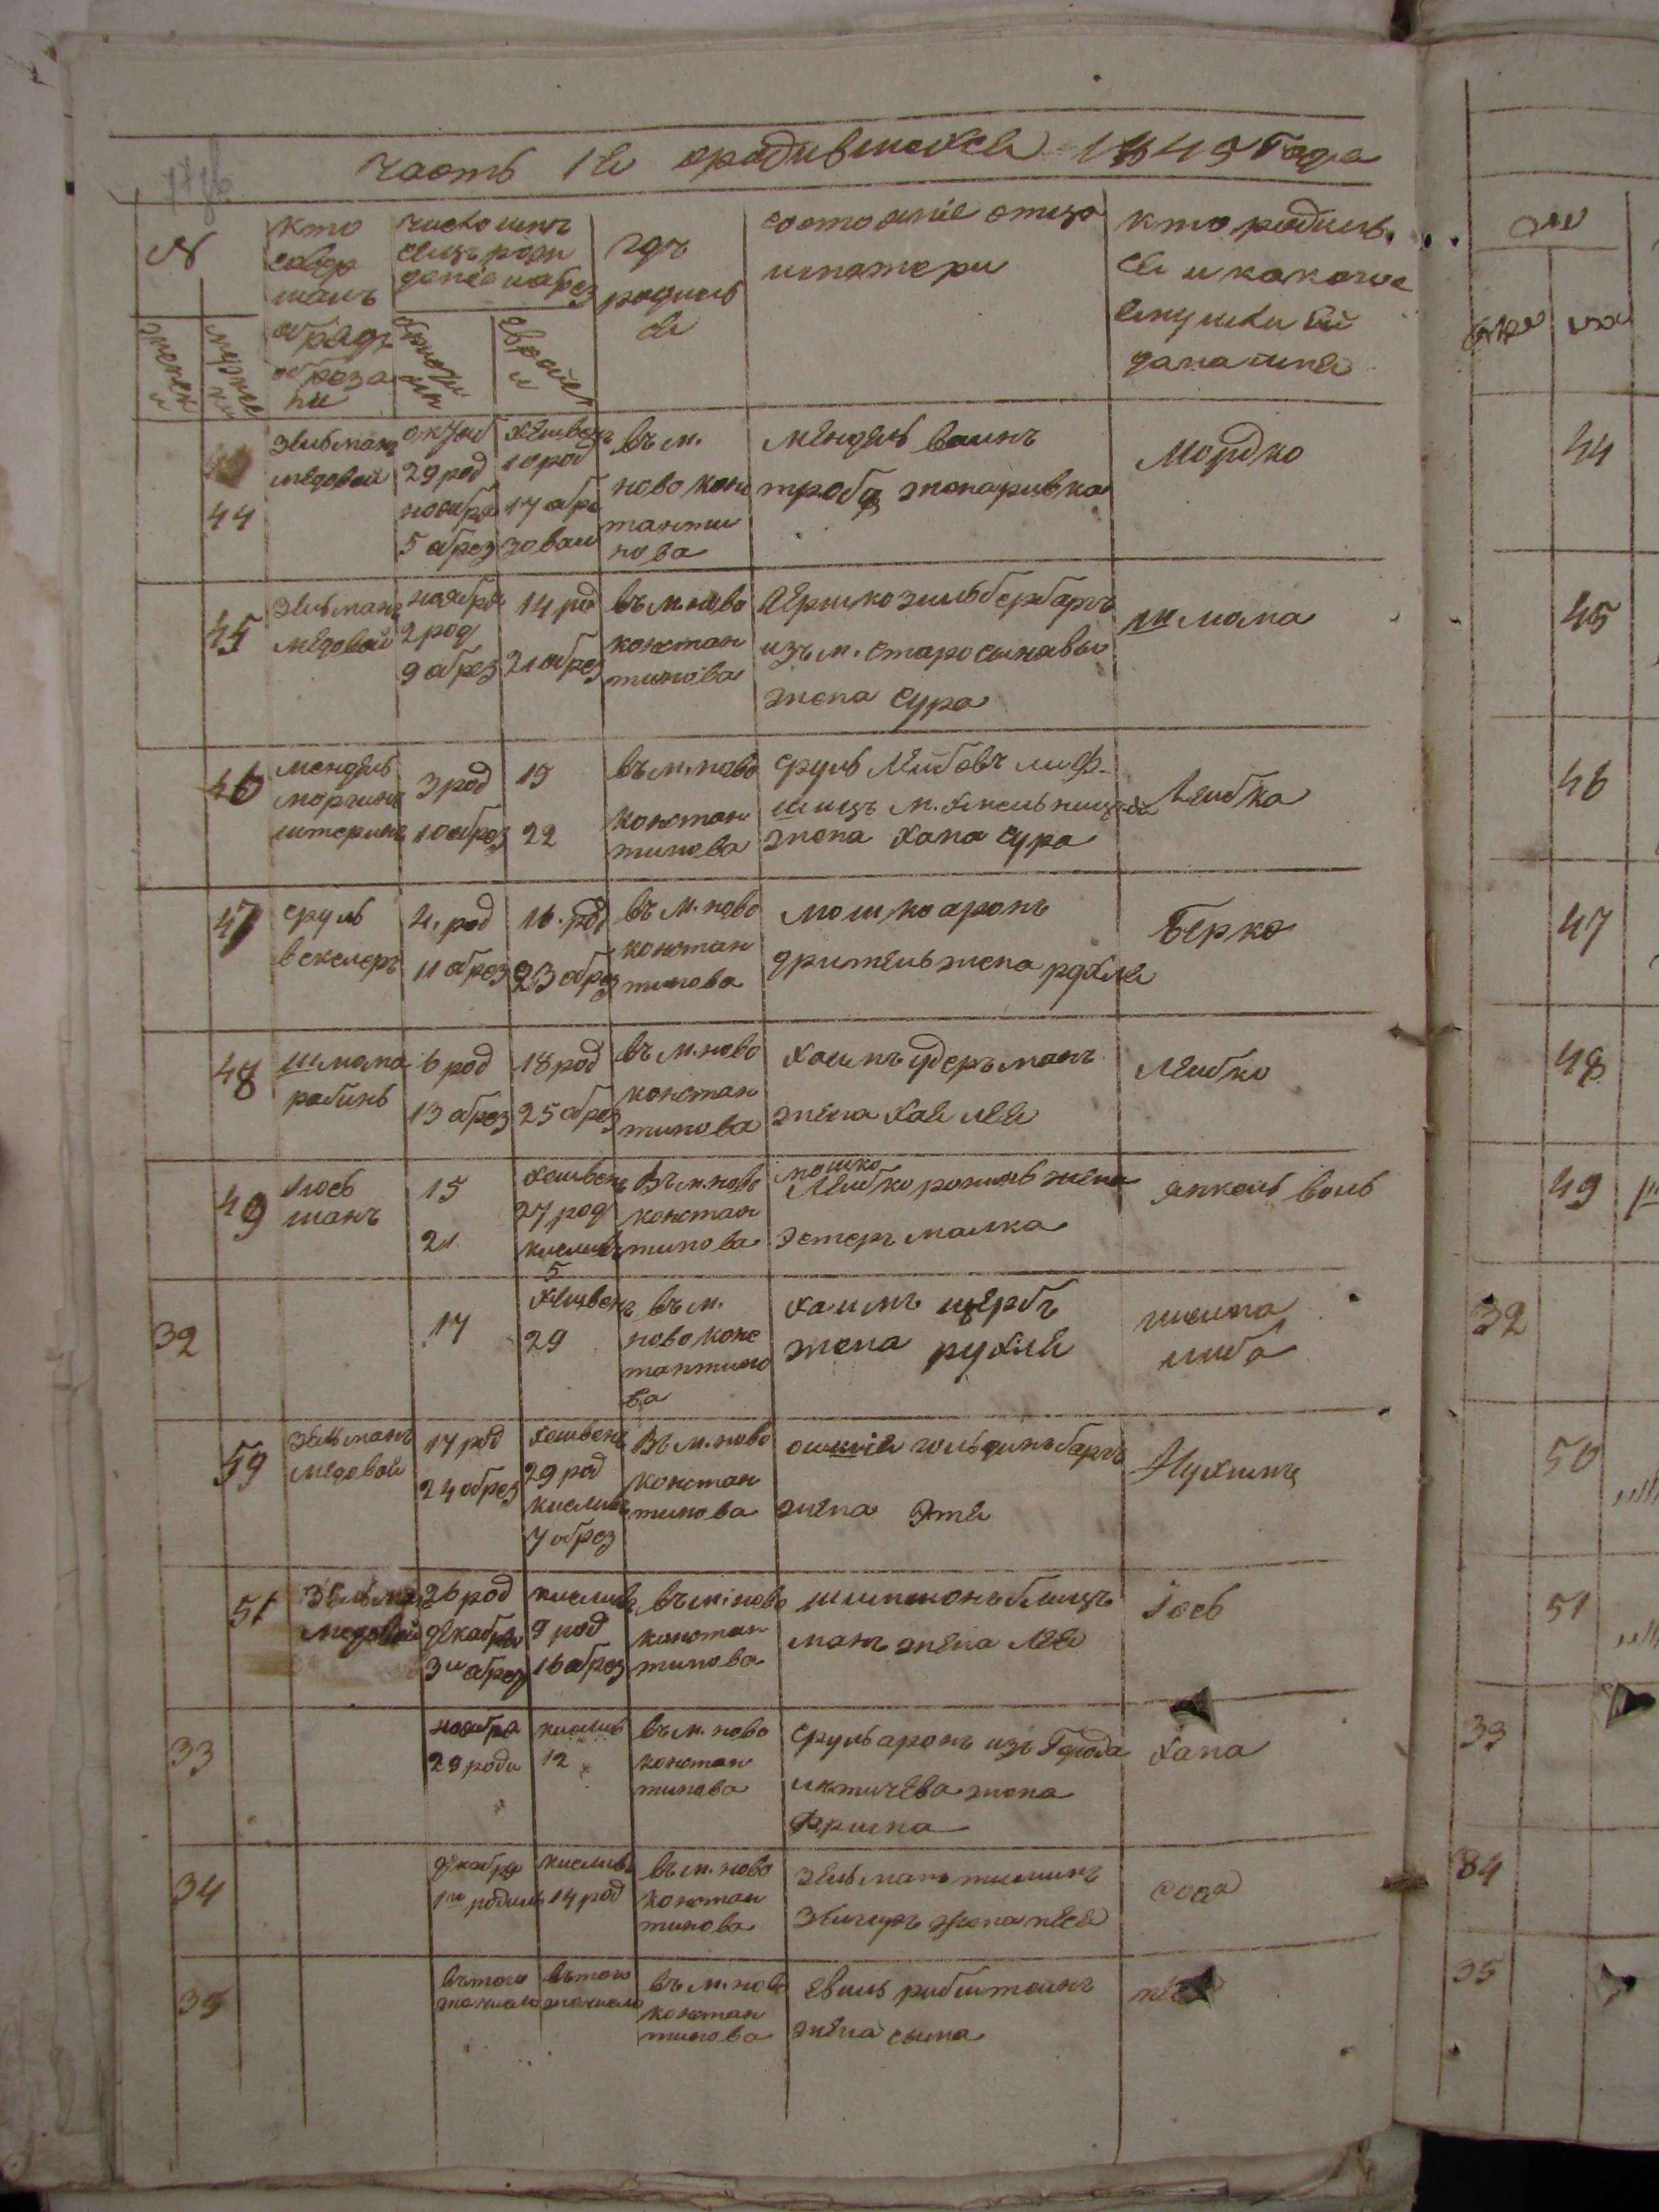 часть 1я ородившихся 1845 Года
№
женск
и
мужес
ки
кто
совер
шалъ
обрядъ
обреза
ни
число имъ
сяцъ рожи
дение иабрез
еврейск
и
гдъ
родилъ
ся
состояние отца
иматери
кто родилъ
ся и какоие
ему или ей
дана имя
44
Зельманъ
медовой
октяб
29 род
ноября
5 абрез
хешвенъ
10 род
17 абре
въ м.
ново конс
танти
нова
мендель ваинъ
троб жена ривка
Мордко
45
Зельманъ
медовой
ноября
2 род
9 абрез
14 род
21 абрез
въ м. ново
констан
тинова
Гершко зильбербаргъ
изъ м. старо сынявы
жена сура
шлома
46
мендель
моргинъ
штеринъ
3 род
10 абрез
15
22
въ м. ново
констан
тинова
сруль Лейбовъ лиф-
шицъ м. хмельницъка
жена хана сура
Лейбка
47
сруль
векслеръ
4. род
11 абрез
16. род
23 абрез
въ м. ново
констан
тинова
мошко аронъ
дритель жена рухля
Берко
48
шлома
рабинъ
6 род
13 абрез
18 род
25 абрез
въ м. ново
констан
тинова
хаимъ удерьманъ
жена хая лея
Лейбко
49
Іосъ
манъ
15
21
хешвенъ
27 род
кислевъ
5
Въ м. ново
констан
тинова
мошко
Лейбко ронинъ жена
Эстеръ малка
янкель воль
32
17
хешвенъ
29
въ м.
ново конс
тантино
ва
хаимъ щербъ
жена рухля
шейна
либа
59
Зельманъ
медовой
17 род
24 абрез
хешвенъ
29 род
кислевъ
7 абрез
Въ м. ново
констан
тинова
ошия гольдинбаргъ
жена Этя
Нухимъ
51
Зельманъ
медовой
26 род
декабря
3и абрез
кислевъ
9 род
16 абрез
въ м. ново
констан
тинова
шимшонъ блицъ
манъ жена Лея
Іосъ
33
ноября
29 роди
кислевъ
12
въ м. ново
констан
тинова
сруль аронъ изъ Города
литичева жена
фрима
хана
34
декабря
1го родилъ
кислевъ
14 род
въ м. ново
констан
тинова
Зельманъ
жена песя
сося
35
въ того
же число
въ того
же число
въ м. ново
констан
тинова
евиль рибштаинъ
жена сыма
44
45
46
47
48
49
32
50
51
33
34
35